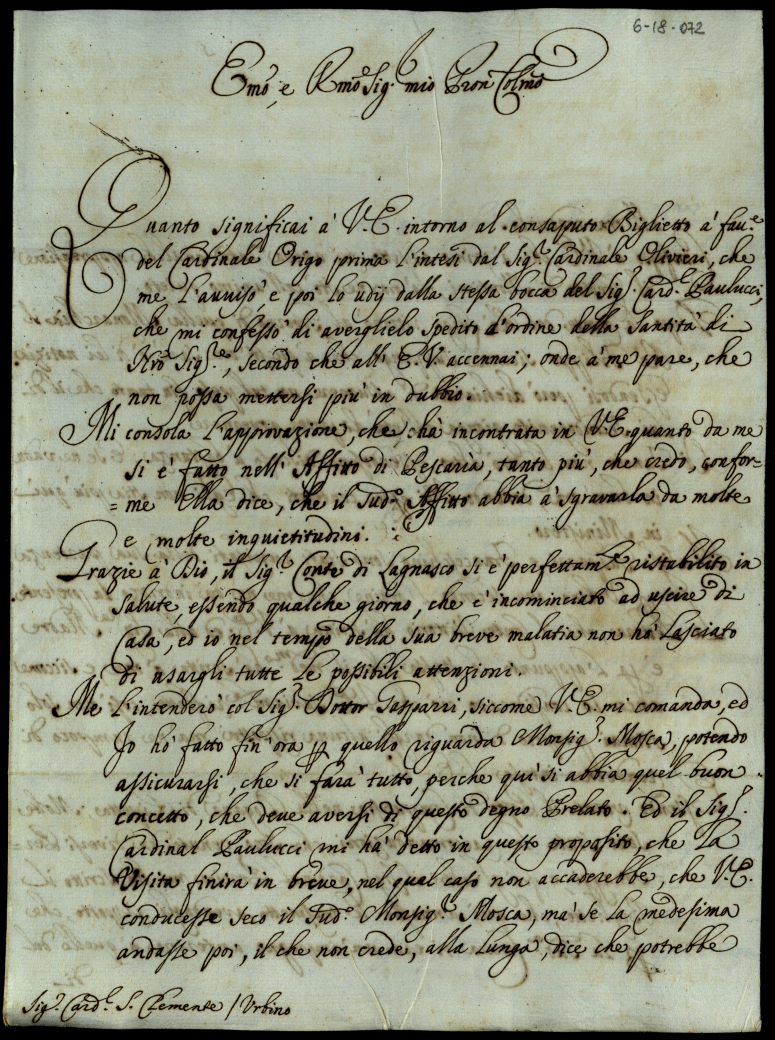 6-18-072
Emo, e Rmo Sig.r mio Pron Colmo
Quanto significai à V.E. intorno al consaputo Biglietto à fau.e
del Cardinale Origo prima l'intesi dal Sig.r Cardinale Olivieri, che
me l'auuisò e poi lo udij dalla stessa bocca del Sig.r Card.e Paulucci,
che mi confessò di averglielo spedito d'ordine della Santità di
Nro Sig.re, secondo che all' E.V. accennai; onde à me pare, che
non possa mettersi più in dubbio.
Mi consola l'approvazione, che hà incontrata in V.E. quanto da me
si è fatto nell' Affitto di Pescaria, tanto più, che credo, confor=
=me Ella dice, che il sud.o Affitto abbia à sgravarla da molte
e molte inquietitudini.
Grazie à Dio, il Sig.r Conte di Lagnasco si è perfettam.te ristabilito in
salute, essendo qualche giorno, che è incominciato ad uscire di
Casa, ed io nel tempo della sua breve malatia non hò lasciato
di usargli tutte le possibili attenzioni.
Me l'intenderò col Sig.r Dottor Gasparri, siccome V.E. mi comanda, ed
Io hò fatto fin' ora p quello riguarda Monsig.r Mosca, potendo
assicurarsi, che si farà tutto, perche quì si abbia quel buon
concetto, che deve aversi di questo degno Prelato. Ed il Sig.r
Cardinal Paulucci mi hà detto in questo proposito, che la
Visita finirà in breve, nel qual caso non accaderebbe, che V.E.
conducesse seco il sud.o Monsig.r Mosca, mà se la medesima
andasse poi, il che non crede, alla lunga, dice che potrebbe
Sig.r Card.l S. Clemente / Urbino